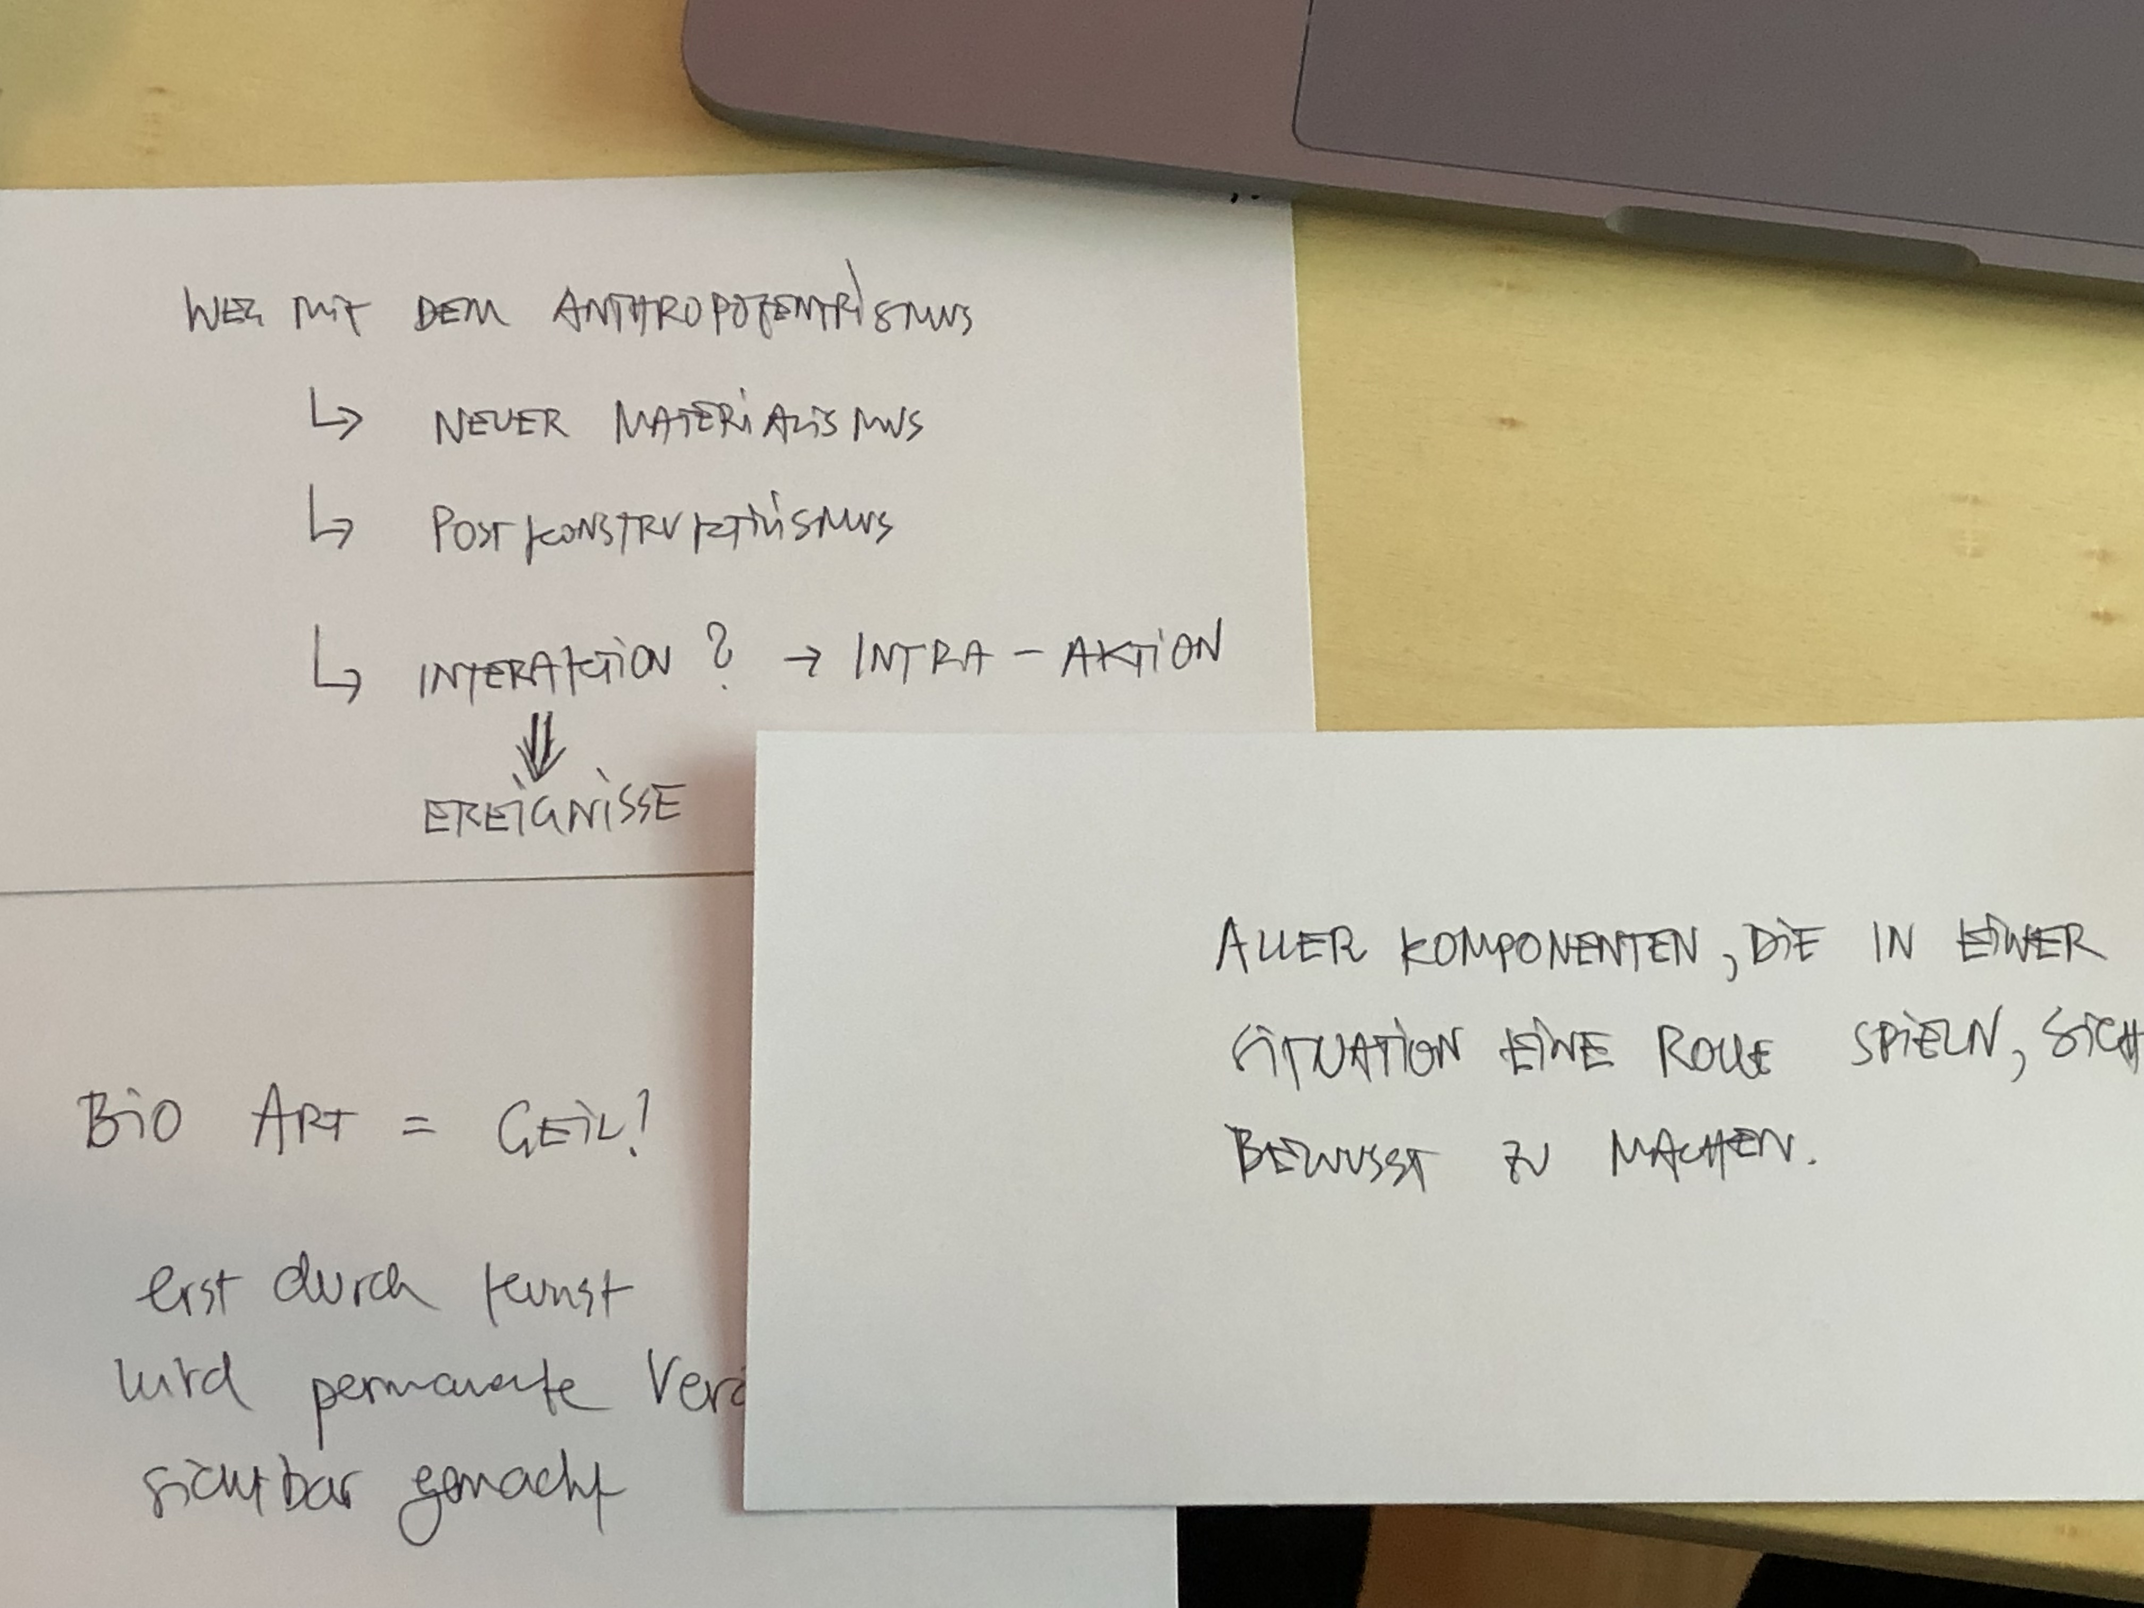 WEG MIT DEM ANTHROPOZENTRISMUS
↳ NEUER MATERIALISMUS
↳ POSTKONSTRUKTIVISMUS
↳ INTERAKTION ? → INTRA - AKTION
⇓
EREIGNISSE
BIO ART = GEIL!
erst durch Kunst
wird permanente Verä
sichtbar gemacht
ALLER KOMPONENTEN, DIE IN EINER
SITUATION EINE ROLLE SPIELN, SICH
BEWUSST ZU MACHEN.